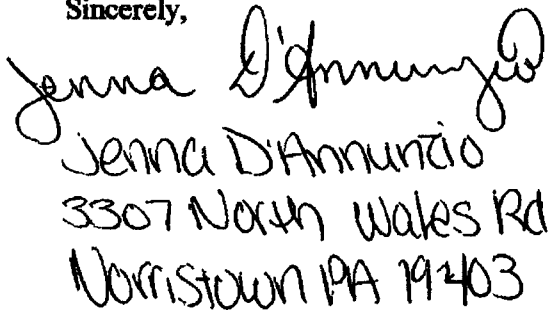 Sincerely,
Jenna D'Annunzio
Jenna D'Annunzio
3307 North Wales Rd
Norristown PA 19403